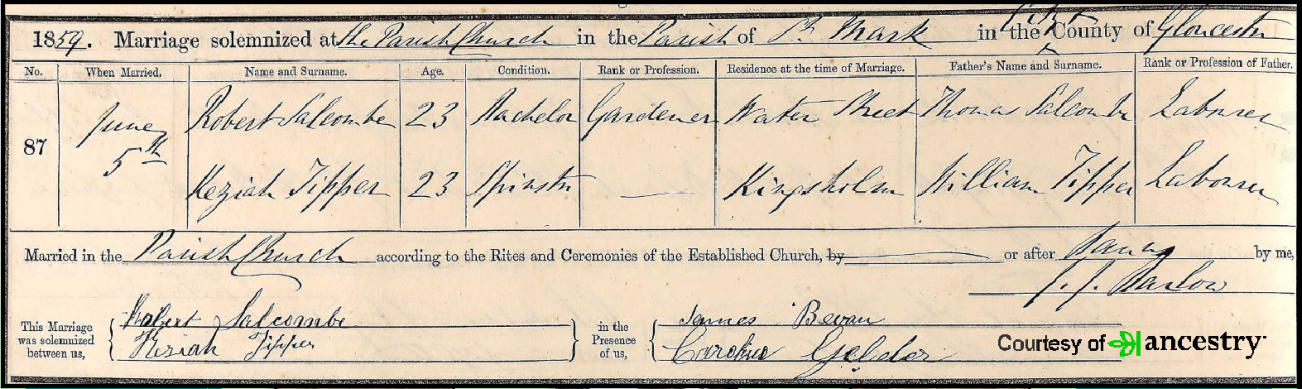 1859. Marriage solemnized at the Parish Church in the Parish of St Mark in the City & County of Gloucester
No. When Married. Name and Surname. Age. Condition. Rank or Profession. Residence at the time of Marriage. Father's Name and Surname. Rank or Profession of Father.
87 June 5th Robert Salcombe 23 Bachelor Gardener Water Street Thomas Salcombe Labourer
Keziah Tipper 23 Spinster Kingsholm William Tipper Labourer
Married in the Parish Church according to the Rites and Ceremonies of the Established Church, by or after Banns by me,
J. J. Barlow
This Marriage was solemnized between us, Robert Salcombe in the Presence of us, James Bevan
Keziah Tipper Caroline
Courtesy of ancestry